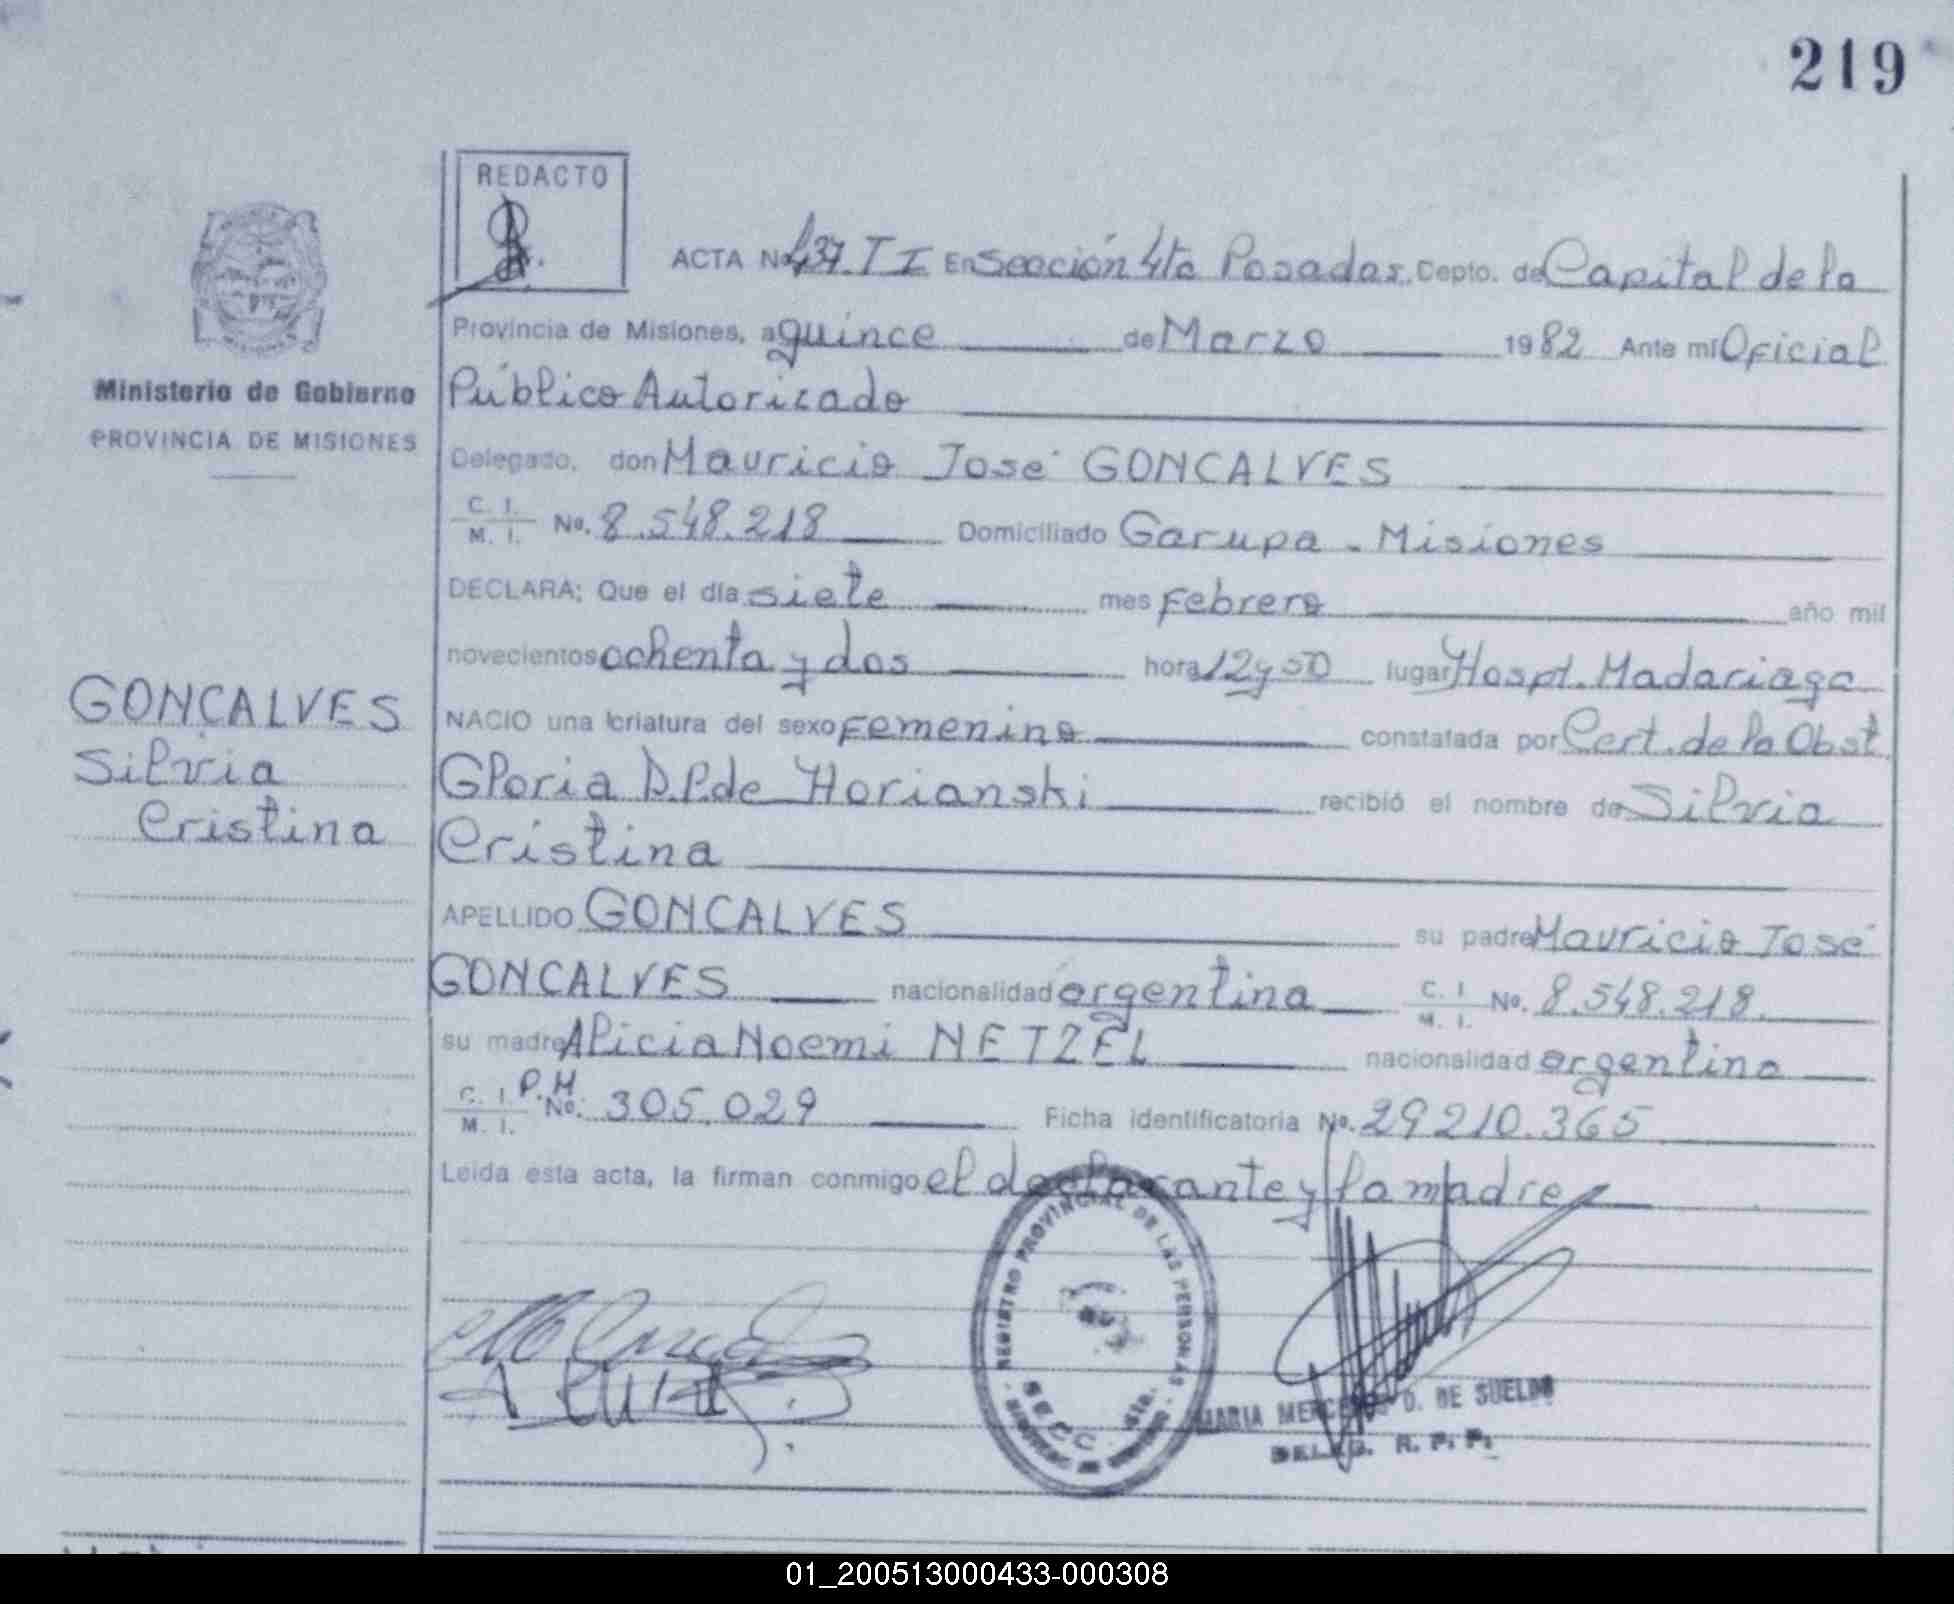 219
REDACTO
ACTA No 437. T I En Sección 4ta Posadas. Depto. de Capital de la
Provincia de Misiones, a quince de Marzo 1982 Ante mí Oficial
Ministerio de Gobierno
PROVINCIA DE MISIONES
Público Autorizado
Delegado, don Mauricio José GONCALVES
C. I. M. I. No. 8.548.218 Domiciliado Garupa - Misiones
DECLARA: Que el día siete mes Febrero año mil
novecientos ochenta y dos hora 12 y 50 lugar Hospt. Madariaga
GONCALVES
Silvia
Cristina
NACIO una criatura del sexo Femenino constatada por Cert. de la Obst
Gloria D.P. de Horianski recibió el nombre de Silvia
Cristina
APELLIDO GONCALVES su padre Mauricio José
GONCALVES nacionalidad argentina C. I. M. I. No. 8.548.218.
su madre Alicia Noemi NETZEL nacionalidad argentina
C. I. M. I. P.H No. 305.029 Ficha identificatoria No. 29210.365
Leída esta acta, la firman conmigo el declarante y la madre
REGISTRO PROVINCIAL DE LAS PERSONAS
SECC. 4ta.
MARIA MERCEDES D. DE SUELDO
DELEG. R. P. P.
01_200513000433-000308